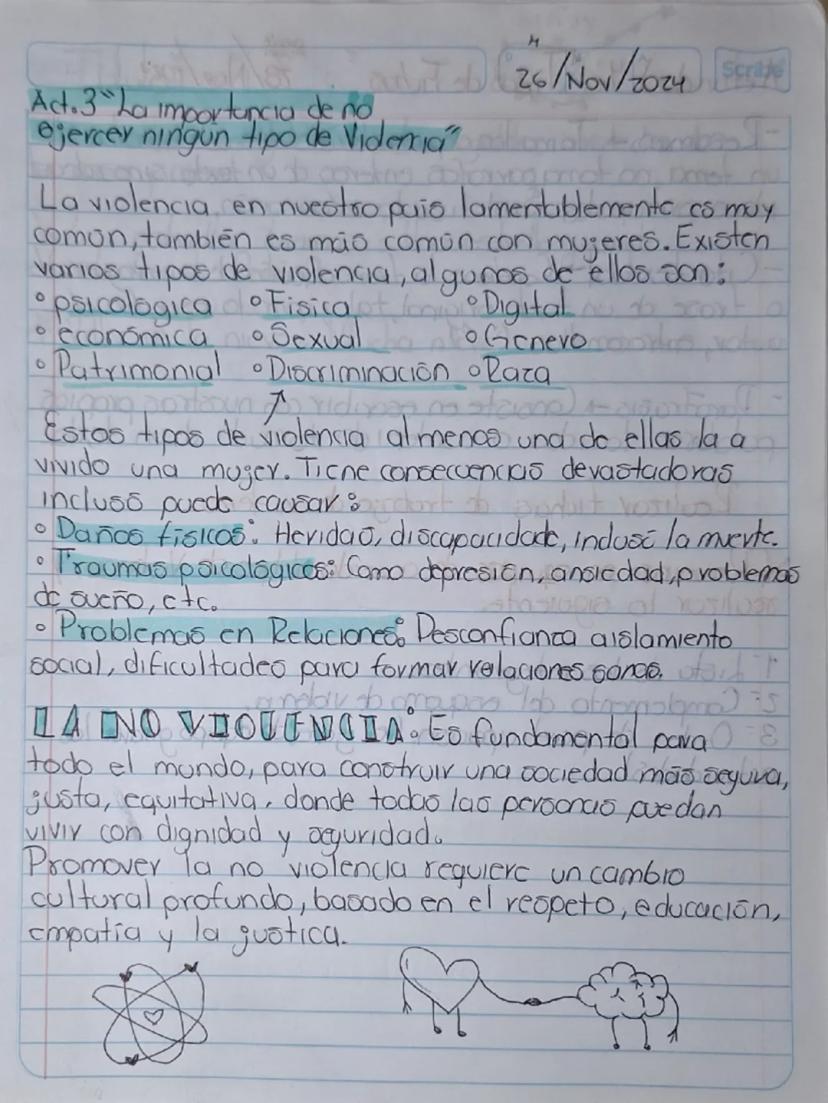 M
26/Nov/2024
Scribe
Act.3 "La importancia de no
ejercer ningún tipo de Violencia"
La violencia en nuestro país lamentablemente es muy
común, también es más común con mujeres. Existen
varios tipos de violencia, algunos de ellos son:
° psicológica ° Física ° Digital
° económica ° Sexual ° Genero
° Patrimonial ° Discriminación ° Raza
Estos tipos de violencia al menos una de ellas la a
vivido una mujer. Tiene consecuencias devastadoras
incluso puede causar:
° Daños físicos: Heridas, discapacidade, incluso la muerte.
° Traumas psicológicos: Como depresión, ansiedad, problemas
de sueño, etc.
° Problemas en Relaciones: Desconfianza aislamiento
social, dificultades para formar relaciones sanas.
LA NO VIOLENCIA: Es fundamental para
todo el mundo, para construir una sociedad más segura,
justa, equitativa, donde todas las personas puedan
vivir con dignidad y seguridad.
Promover la no violencia requiere un cambio
cultural profundo, basado en el respeto, educación,
empatía y la justica.